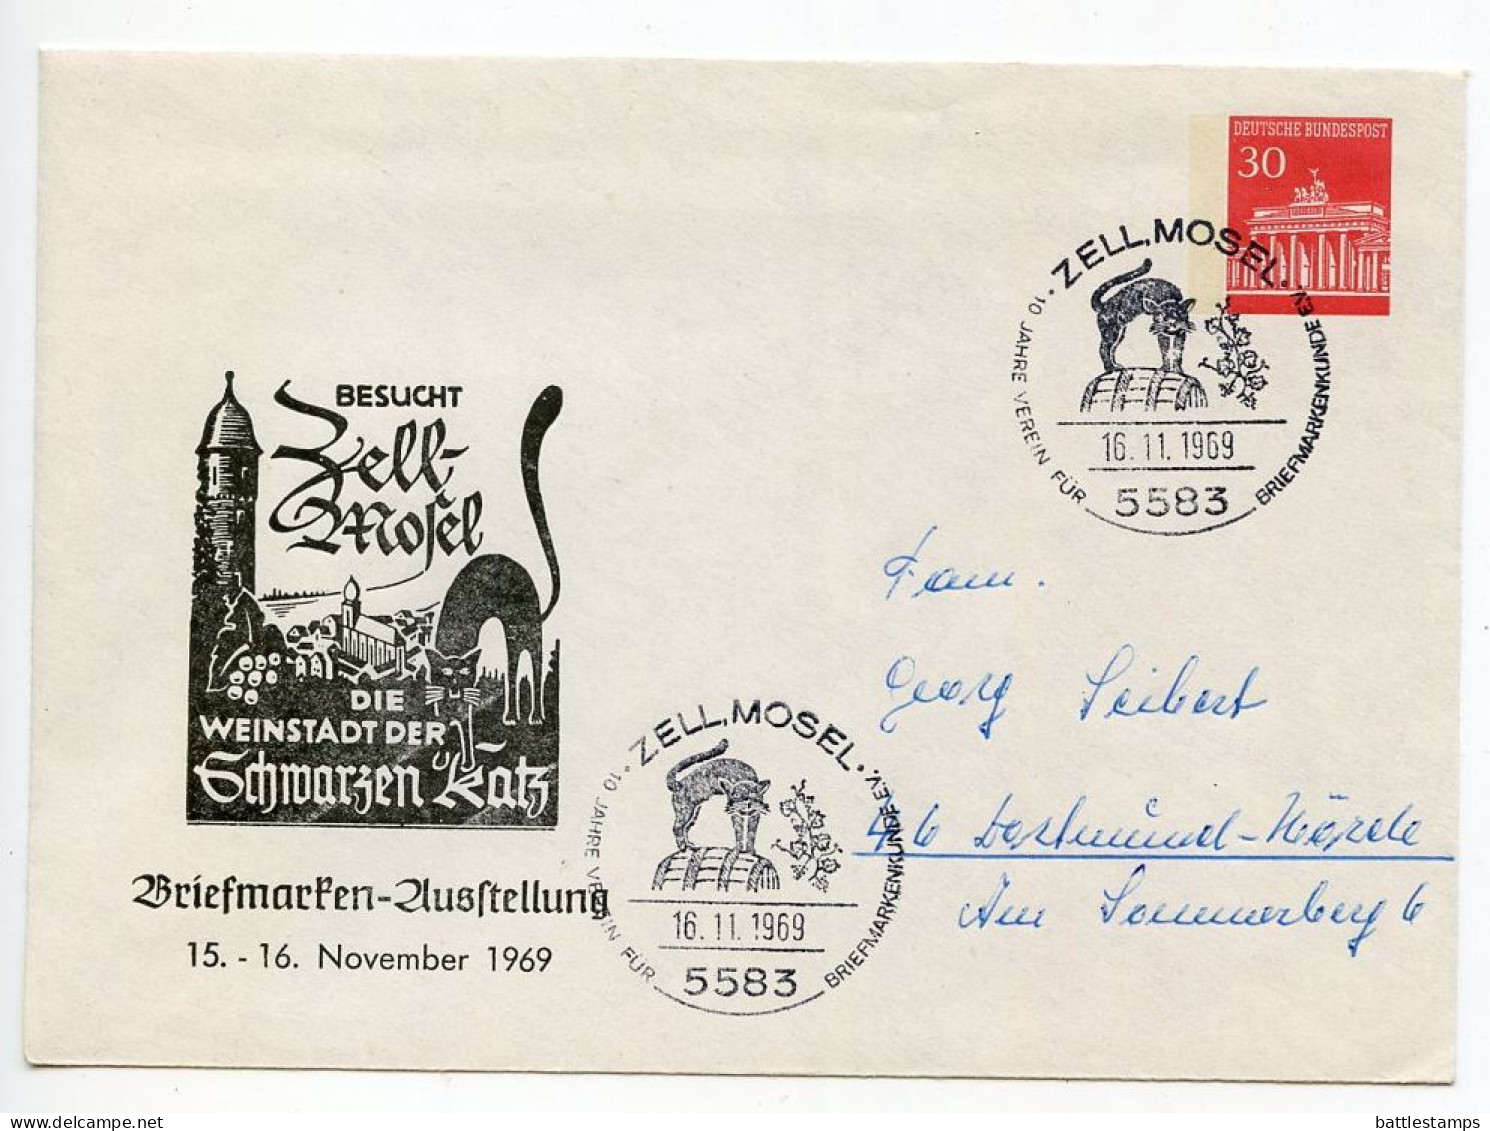 DEUTSCHE BUNDESPOST
30
ZELL, MOSEL
10 JAHRE VEREIN FÜR BRIEFMARKENKUNDE E.V.
16.11.1969
5583
BESUCHT
Zell-
Mosel
DIE
WEINSTADT DER
Schwarzen Katz
Briefmarken-Ausstellung
15. - 16. November 1969
ZELL, MOSEL
10 JAHRE VEREIN FÜR BRIEFMARKENKUNDE E.V.
16.11.1969
5583
Fam.
Georg Seibert
46 Dortmund-Hörde
Am Sommerberg 6
battlestamps